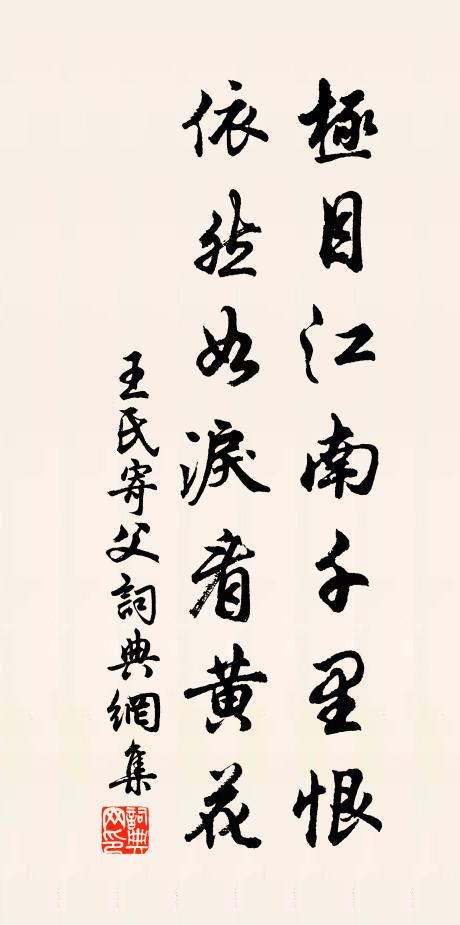 極目江南千里恨
依然如淚看黃花
王氏寄父詞典網集
詞典網印